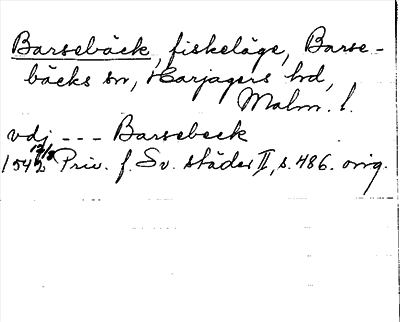 Barsebäck, fiskeläge, Barse-
bäcks sn, Harjagers hd,
Malm. l.
vdj --- Barsebeck
1542 Priv. f. Sv. städer II, s. 486. orig.